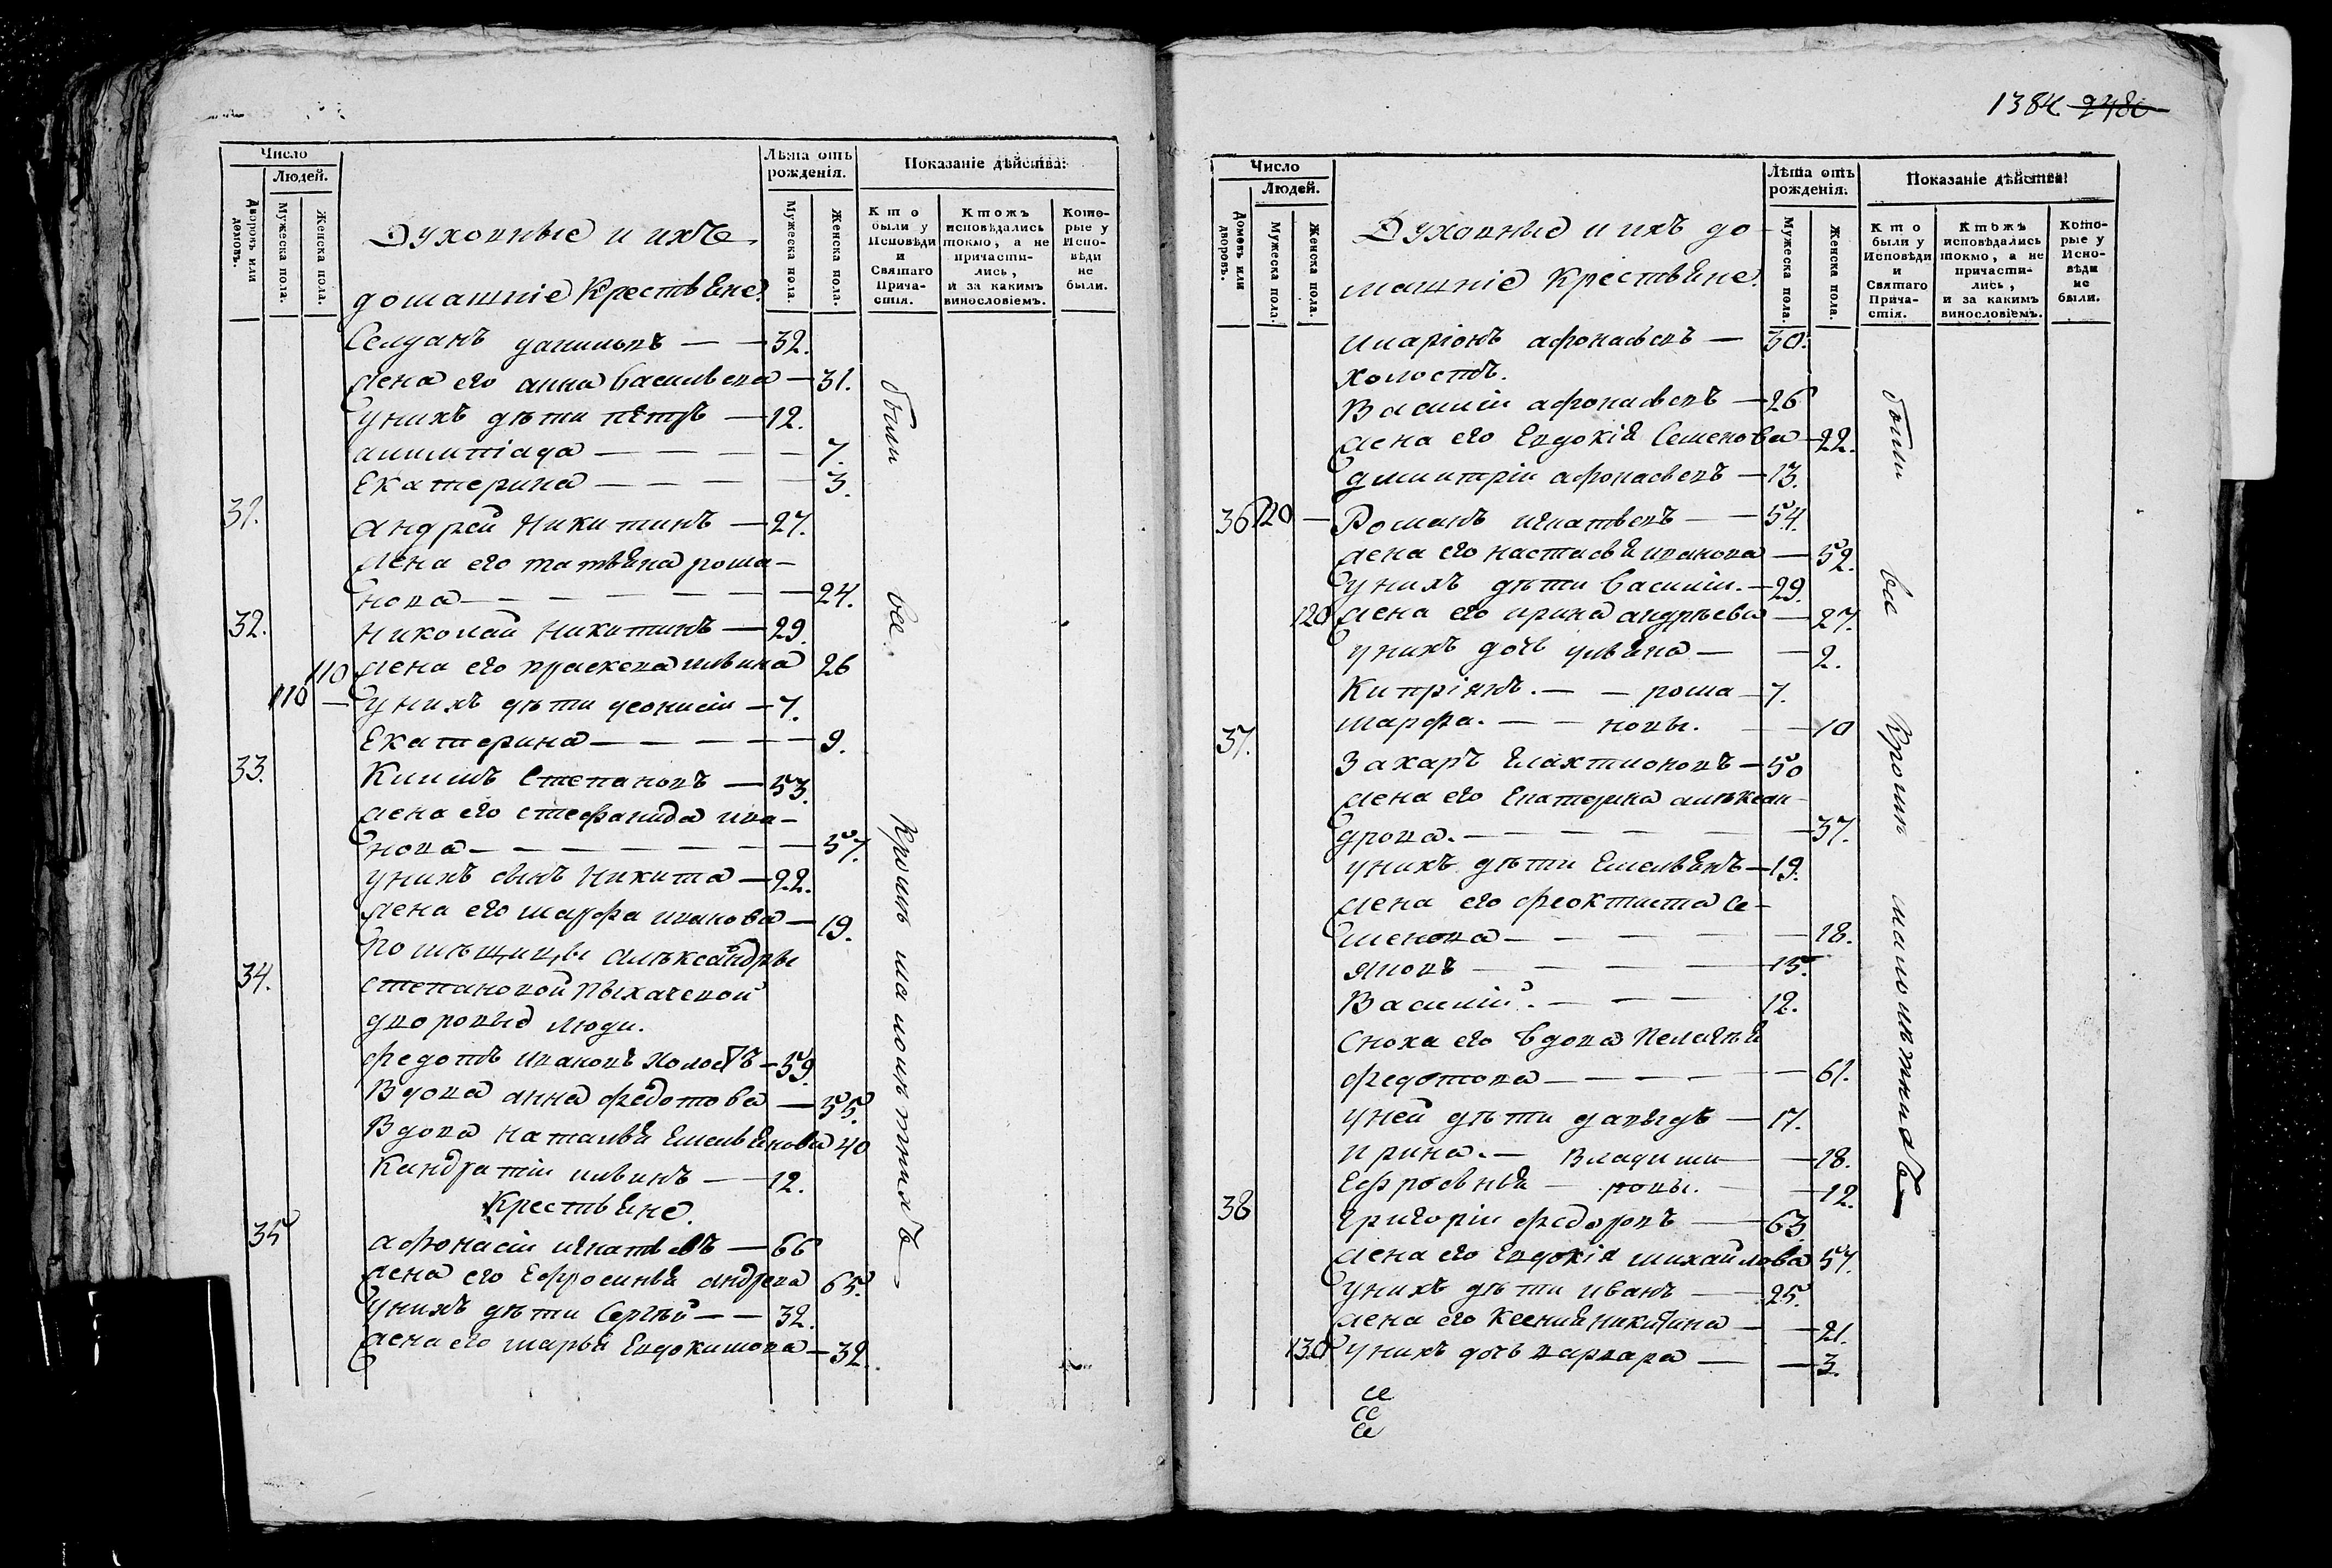 Число
Людей.
Дворовъ или домовъ.
Мужеска пола.
Женска пола.
Духовные и ихъ
домашніе Крестьяне.
Лѣта отъ рожденія.
Мужеска пола.
Женска пола.
Показаніе дѣйства:
Кто были у Исповѣди и Святаго Причастія.
Ктожъ исповѣдались токмо, а не причастились, и за какимъ винословіемъ.
Которые у Исповѣди не были.
даниловъ — — 32.
жена его анна васильева — 31.
у нихъ дѣти петръ — 12.
алимпіада — — — — 7.
Екатерина — — — — 3.
31. андрей Никитинъ — 27.
жена его татьяна рома-
нова — — — — — — 24.
32. Николай Никитинъ — 29.
110 жена его праскева ильина 26
110 — у нихъ дѣти деонисіи — 7.
Екатерина — — — — — 9.
33. Климъ Степановъ — 53.
жена его стефанида ива-
нова — — — — — — — 57.
у нихъ сынъ Никита — 22.
жена его марфа иванова — 19.
помѣщицы алѣксандры
34. степановой Пыхачевой
дворовые люди.
федотъ ивановъ холостъ — 59.
Вдова анна федотова — 55.
Вдова наталья емельянова 40
Кандратіи ильинъ — 12.
Крестьяне.
35 афонасіи игнатьевъ — 66
жена его Ефросинья андреева 65.
у нихъ дѣти Сергѣй — — 32.
жена его марья Евдокимова — 32.
были все. Кромѣ малолѣтнихъ
1384 2480
Число
Людей.
Домовъ или дворовъ.
Мужеска пола.
Женска пола.
Духовные и ихъ до-
машніе Крестьяне.
Лѣта отъ рожденія.
Мужеска пола.
Женска пола.
Показаніе дѣйства:
Кто были у Исповѣди и Святаго Причастія.
Ктожъ исповѣдались токмо, а не причастились, и за какимъ винословіемъ.
Которые у Исповѣди не были.
иларіонъ афонасьевъ — 30.
холостъ.
Василіи афонасьевъ — 26
жена его Евдокія Семенова — 22.
дмитріи афонасьевъ — 13.
36 120 — Романъ игнатьевъ — — 54.
жена его настасья иванова — 52.
у нихъ дѣти василіи. — 29.
120 жена его ирина андрѣева — 27.
у нихъ дочь ульяна — — 2.
Кипріянъ. — — рома — 7.
марфа. — — новы. — 10
37. Захаръ Галахтионовъ — 50
жена его Екатерина алѣксан-
дрова. — — — — — — 37.
у нихъ дѣти Емельянъ — 19.
жена его феоктиста Се-
менова — — — — — 18.
яковъ — — — — 15.
Василій. — — — 12.
сноха его вдова Пелагея
федотова — — — — — 61.
у ней дѣти давыдъ — 17.
ирина. — Владими — — 18.
Ефросинья — ровы. — — 12.
38 григоріи федоровъ — 63
жена его Евдокія михайлова 57.
у нихъ дѣти иванъ — 25.
жена его Ксения никитина — 21.
130. у нихъ дочь варвара — — 3.
были все Кромѣ малолѣтнихъ